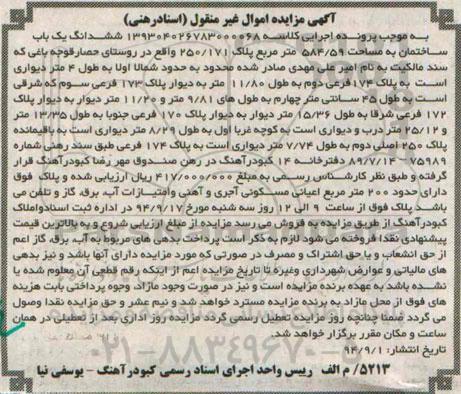 آگهی مزایده اموال غیر منقول (اسنادرهنی)
به موجب پرونده اجرایی کلاسه ۱۳۹۳۰۴۰۲۶۷۸۳۰۰۰۰۶۸ ششدانگ یک باب
ساختمان به مساحت ۵۸۴/۵۹ متر مربع پلاک ۲۵۰/۱۷۱ واقع در روستای حصارقوجه باغی که
سند مالکیت به نام امیر علی مهدی صادر شده محدود به حدود شمالا اولا به طول ۴ متر دیواری
است به پلاک ۱۷۴ فرعی دوم به طول ۱۱/۸۰ متر به دیوار پلاک ۱۷۳ فرعی سوم که شرقی
است به طول ۴۵ سانتی متر چهارم به طول های ۹/۸۱ متر و ۱۱/۲۰ متر دیوار به دیوار پلاک
۱۷۲ فرعی شرقا به طول ۱۵/۳۶ متر دیوار به دیوار پلاک ۱۷۰ فرعی جنوبا به طول ۱۳/۳۵ متر
و ۱۲/۲۵ متر درب و دیواری است به کوچه غربا اول به طول ۲۹/۸ متر دیواری است به باقیمانده
پلاک ۲۵۰ اصلی دوم به طول ۷/۷۴ متر دیواری است به پلاک ۱۷۴ فرعی طبق سند رهنی شماره
۷۵۹۸۹ ۸۹/۷/۱۴ دفترخانه ۱۴ کبودرآهنگ در رهن صندوق مهر رضا کبودرآهنگ قرار
گرفته و طبق نظر کارشناس رسمی به مبلغ ۴۱۷/۰۰۰/۰۰۰ ریال ارزیابی شده و پلاک فوق
دارای حدود ۲۰۰ متر مربع اعیانی مسکونی آجری و آهنی وامتیازات آب، برق، گاز و تلفن می
باشد پلاک فوق از ساعت ۹ الی ۱۲ روز سه شنبه مورخ ۹۴/۹/۱۷ در اداره ثبت اسنادواملاک
کبودرآهنگ از طریق مزایده به فروش می رسد مزایده از مبلغ ارزیابی شروع و به بالاترین قیمت
پیشنهادی نقدا فروخته می شود لازم به ذکر است پرداخت بدهی های مربوط به آب، برق، گاز اعم
از حق انشعاب و یا حق اشتراک و مصرف در صورتی که مورد مزایده دارای آنها باشد و نیز بدهی
های مالیاتی و عوارض شهرداری وغیره تا تاریخ مزایده اعم از اینکه رقم قطعی آن معلوم شده یا
نشده باشد به عهده برنده مزایده است و نیز در صورت وجود مازاد، وجوه پرداختی بابت هزینه
های فوق از محل مازاد به برنده مزایده مسترد خواهد شد و نیم عشر و حق مزایده نقدا وصول
می گردد ضمنا چنانچه روز مزایده تعطیل رسمی گردد مزایده روز اداری بعد از تعطیلی در همان
ساعت و مکان مقرر برگزار خواهد شد.
تاریخ انتشار: ۹۴/۹/۱
۵۲۱۳/ م الف رییس واحد اجرای اسناد رسمی کبودرآهنگ - یوسفی نیا
۰۲۱-۸۸۳۴۹۶۷۰